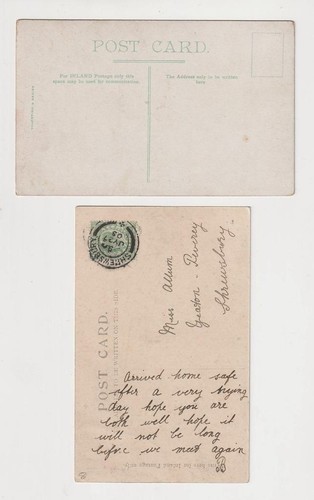 POST CARD.
For INLAND Postage only this
space may be used for communication.
The Address only to be written
here.
SHREWSBURY
JY 27
05
Miss Allum
Shrewsbury
POST CARD.
TO BE WRITTEN ON THIS SIDE
Arrived home safe
after a very trying
day hope you are
both well hope it
will not be long
before we meet again
for Inland Postage only